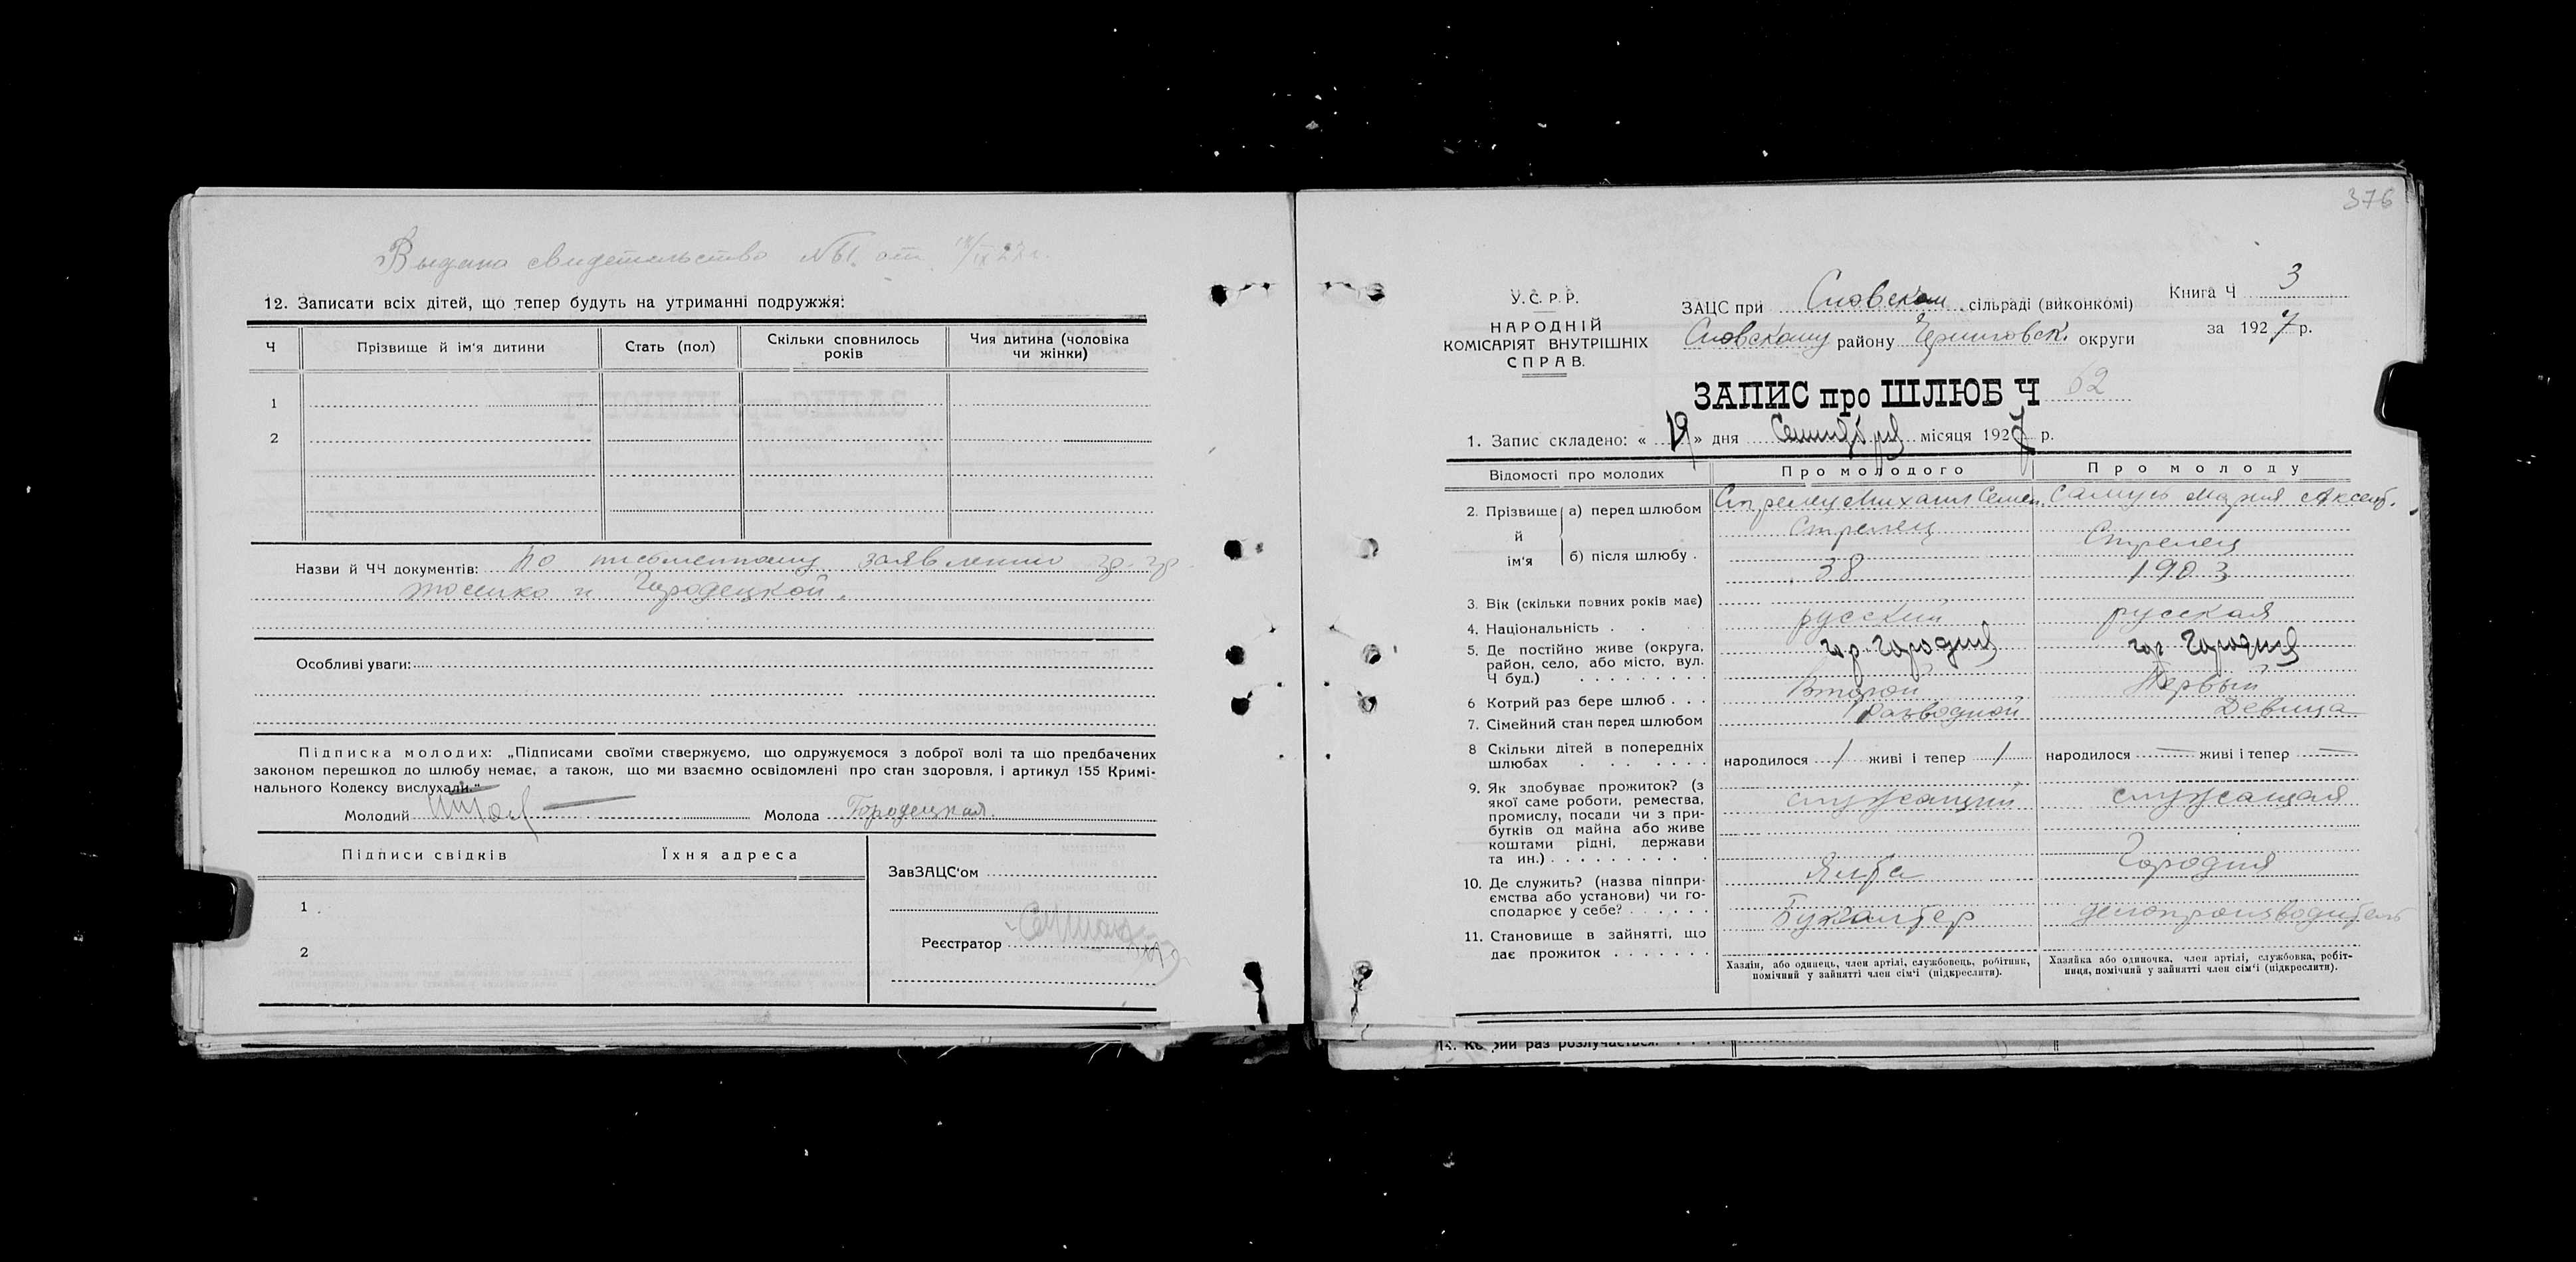 Выдано свидетельство № 61. от 19/IX 27 г.
12. Записати всіх дітей, що тепер будуть на утриманні подружжя:
Ч Прізвище й ім'я дитини Стать (пол) Скільки сповнилось років Чия дитина (чоловіка чи жінки)
1
2
Назви й ЧЧ документів: По письменному заявлению гр. гр.
и Городецкой.
Особливі уваги:
Підписка молодих: „Підписами своїми ствержуємо, що одружуємося з доброї волі та що предбачених
законом перешкод до шлюбу немає, а також, що ми взаємно освідомлені про стан здоровля, і артикул 155 Кримі-
нального Кодексу вислухали."
Молодий Молода Городецкая.
Підписи свідків Їхня адреса
ЗавЗАЦС'ом
1
Реєстратор
2
376
У.С.Р.Р.
НАРОДНІЙ
КОМІСАРІЯТ ВНУТРІШНІХ
СПРАВ.
ЗАЦС при Сновском сільраді (виконкомі)
Сновскому району Черниговск. округи
Книга Ч 3
за 1927 р.
ЗАПИС про ШЛЮБ Ч 62
1. Запис складено: « 19 » дня Сентября місяця 1927 р.
Відомості про молодих Про молодого Про молоду
2. Прізвище й ім'я а) перед шлюбом Стрелец Михаил Семен. Самусь Мария Аксент.
б) після шлюбу . Стрелец Стрелец
3. Вік (скільки повних років має) 38 1903
4. Національність . . русский русская
5. Де постійно живе (округа, район, село, або місто, вул. Ч буд.) гор. Городня гор. Городня
6 Котрий раз бере шлюб . . . Второй Первый
7. Сімейний стан перед шлюбом Разводной Девица
8 Скільки дітей в попередніх шлюбах народилося 1 живі і тепер 1 народилося — живі і тепер —
9. Як здобуває прожиток? (з якої саме роботи, ремества, промислу, посади чи з прибутків од майна або живе коштами рідні, держави та ин.) служащий служащая
10. Де служить? (назва піпприємства або установи) чи господарює у себе? Ялта Городня
11. Становище в зайнятті, що дає прожиток Бухгалтер делопроизводитель
Хазяїн, або одинець, член артілі, службовець, робітник, помічний у зайнятті член сім'ї (підкреслити).
Хазяйка або одиночка, член артілі, службовка, робітниця, помічний у зайнятті член сім'ї (підкреслити).